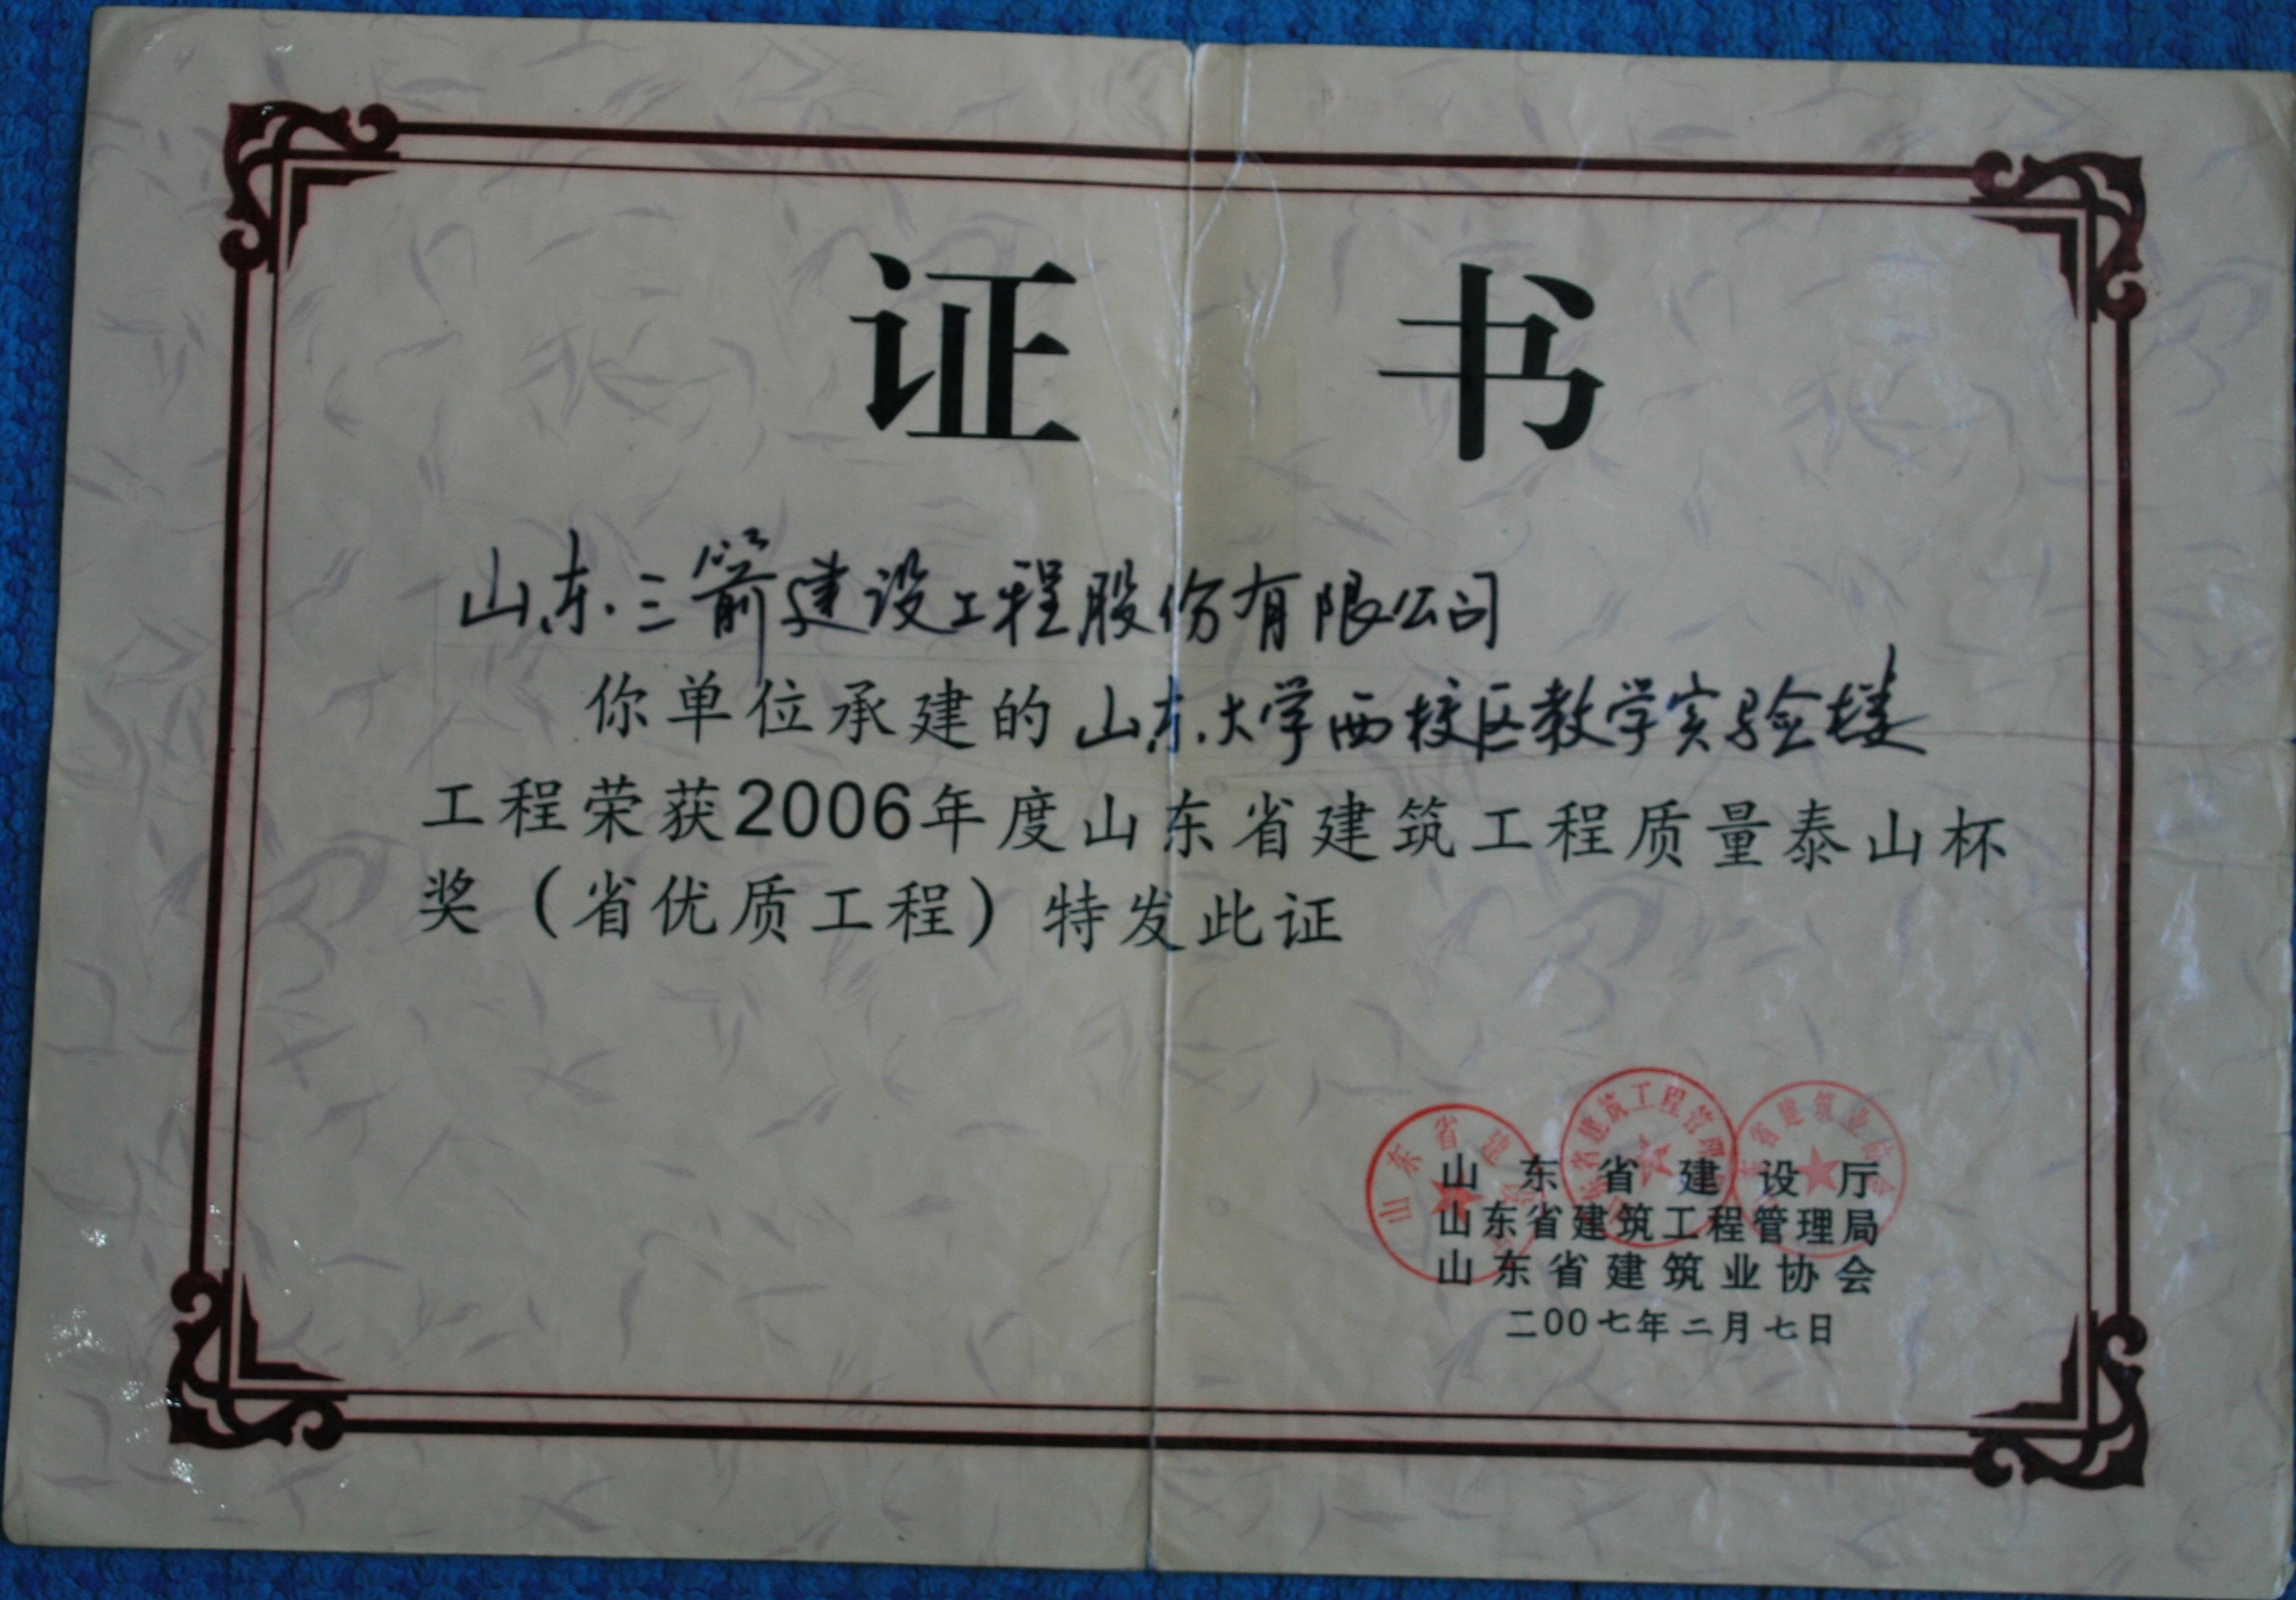 证 书
山东三箭建设工程股份有限公司
你单位承建的山东大学西校区教学实验楼
工程荣获2006年度山东省建筑工程质量泰山杯
奖（省优质工程）特发此证
山东省建设厅
山东省建筑工程管理局
山东省建筑业协会
二00七年二月七日